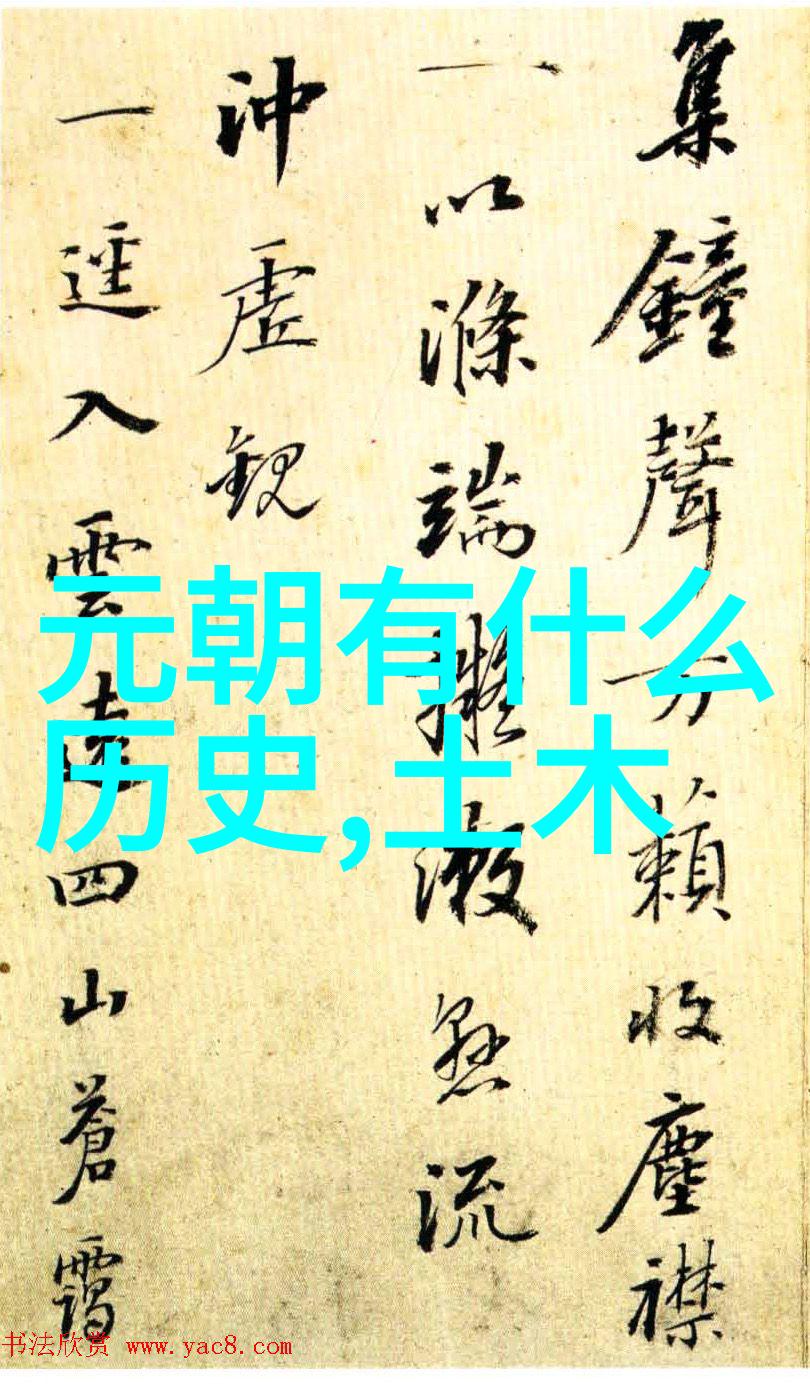 集鐘聲万籟收塵襟
一以滌端擬漱懸流
沖虛観
一逕入雲遠四山蒼靄
元朝有什么
历史,土木
书法欣赏 www.yac8.com